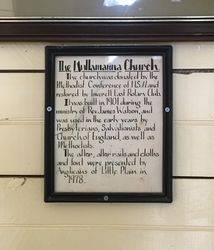 The Nullamanna Church
The church was donated by the
Methodist Conference of N.S.W. and
restored by Inverell East Rotary Club.
It was built in 1901 during the
ministry of Rev. James Watson, and
was used in the early years by
Presbyterians, Salvationists and
Church of England, as well as
Methodists.
The altar, altar rails and cloths
and font were presented by
Anglicans of Little Plain in
1978.